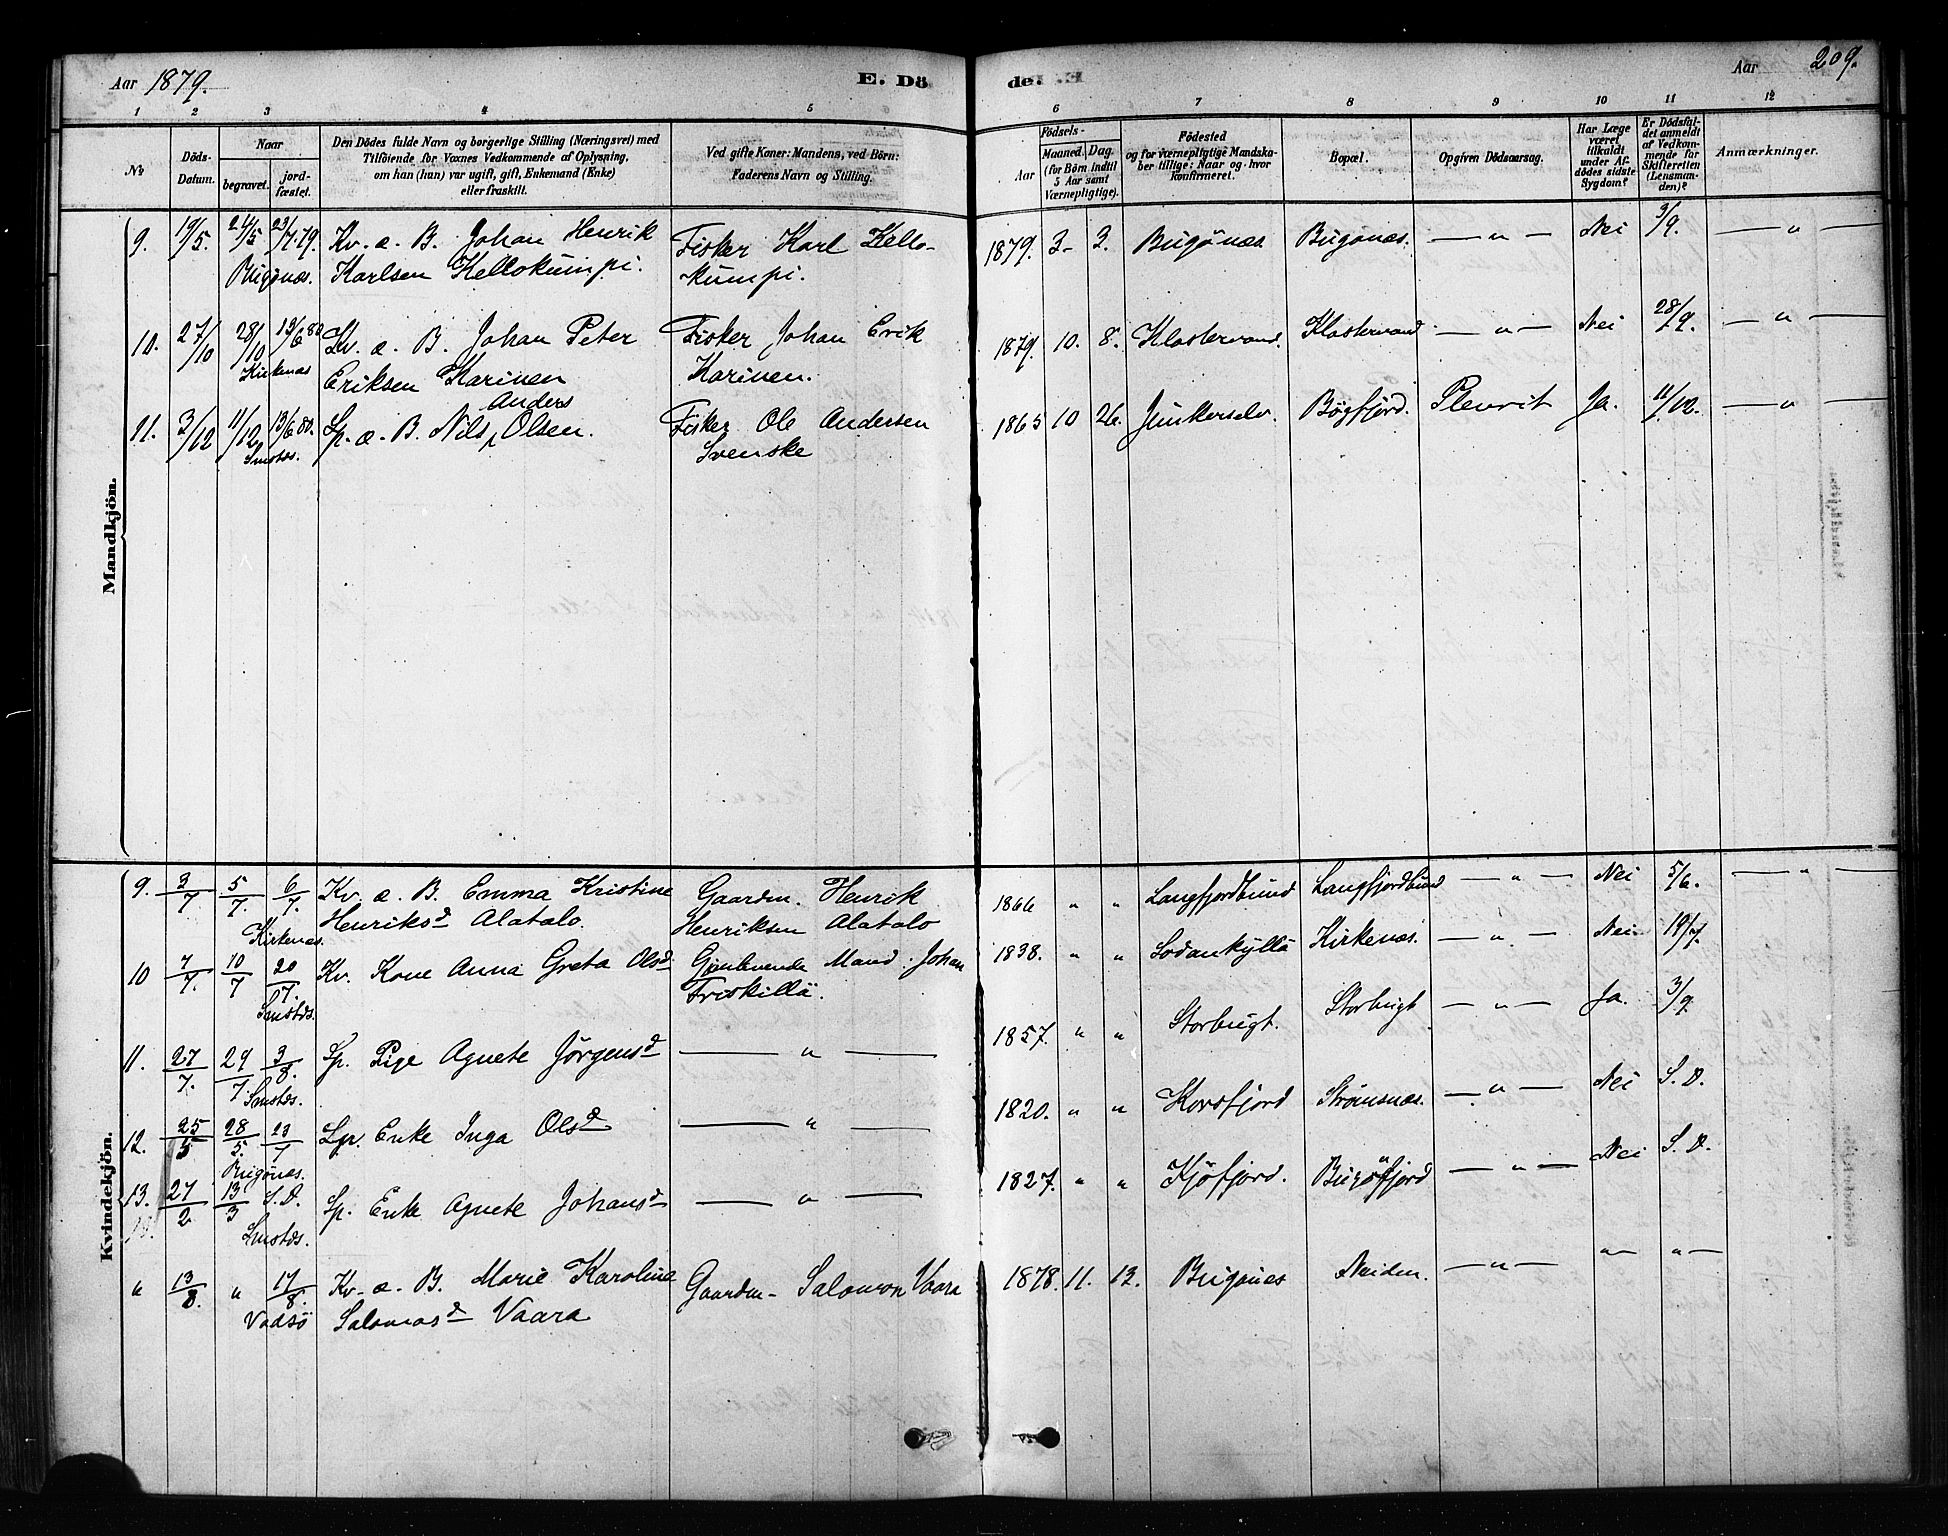 Aar 1879.
E. Döde.
Aar 209.
1 2 3 4 5 6 7 8 9 10 11 12
No
Döds-Datum.
Naar
begravet.
jord-fæstet.
Den Dödes fulde Navn og borgerlige Stilling (Næringsvei) med
Tilföiende for Voxnes Vedkommende af Oplysning,
om han (hun) var ugift, gift, Enkemand (Enke)
eller fraskilt.
Ved gifte Koner: Mandens, ved Börn:
Faderens Navn og Stilling.
Födsels-
Aar
Maaned. Dag.
(for Börn indtil
5 Aar samt
Værnepligtige).
Födested
og for værnepligtige Mandska-
ber tillige: Naar og hvor
konfirmeret.
Bopæl.
Opgiven Dödsaarsag.
Har Læge
været
tilkaldt
under Af-
dödes sidste
Sygdom?
Er Dödsfal-
det anmeldt
af Vedkom-
mende for
Skifteretten
(Lensman-
den)?
Anmærkninger.
Mandkjön.
9. 19/5. 24/5 23/7.79. Kv. a. B. Johan Henrik Fisker Karl Kello- 1879. 3- 3. Bugönæs Bugönæs. — " — Nei 3/9. — " —
Bugönæs. Karlsen Kellokumpi. -kumpi.
10. 27/10 28/10 13/6 80 Kv. a. B. Johan Peter Fisker Johan Erik 1879. 10. 8. Klostervand. Klostervand — " — Nei 28/9. — " —
Kirkenæs Eriksen Karinen Karinen.
Anders
11. 3/12 11/12 13/6 80. Lp. a. B. Nils, Olsen. Fisker Ole Andersen 1865 10 26. Junkerselv. Bögfjord. Pleurit Ja. 11/12. — " —
Smstds. Svenske
Kvindekjön.
9. 3/7 5/7. 6/7. Kv. a. B. Emma Kristine Gaardm. Henrik 1866 " " Langfjordbund Langfjordbund — " — Nei 5/6. — " —
Kirkenæs. Henriksd Alatalo. Henriksen Alatalo
10 7/7. 10/7 20/7. Kv. Kone Anna Greta Olsd Gjenlevende Mand. Johan 1838. " " Sodankyllä Kirkenæs. — " — Nei 19/7.
Smstds. Friskillä.
11. 27/7. 29/7 3/8. Lp. Pige Agnete Jörgensd — " — 1857. " " Storbugt. Storbugt — " — Ja. 3/9
Smstds.
12. 25/5 28/5. 23/7 Lp. Enke Inga Olsd — " — 1820. " " Korsfjord Strömsnæs. — " — Nei S. D.
Bugönæs.
13. 27/2 13/3 S. D. Lp. Enke Agnete Johansd — " — 1827. " " Kjöfjord. Bugöfjord — " — Nei S. D.
Smstds.
" 13/8. " 17/8. Kv. a. B. Marie Karoline Gaardm- Salomon Vaara 1878. 11. 12. Bugönes Neiden. — " — " — " —
Vadsö Salomosd Vaara